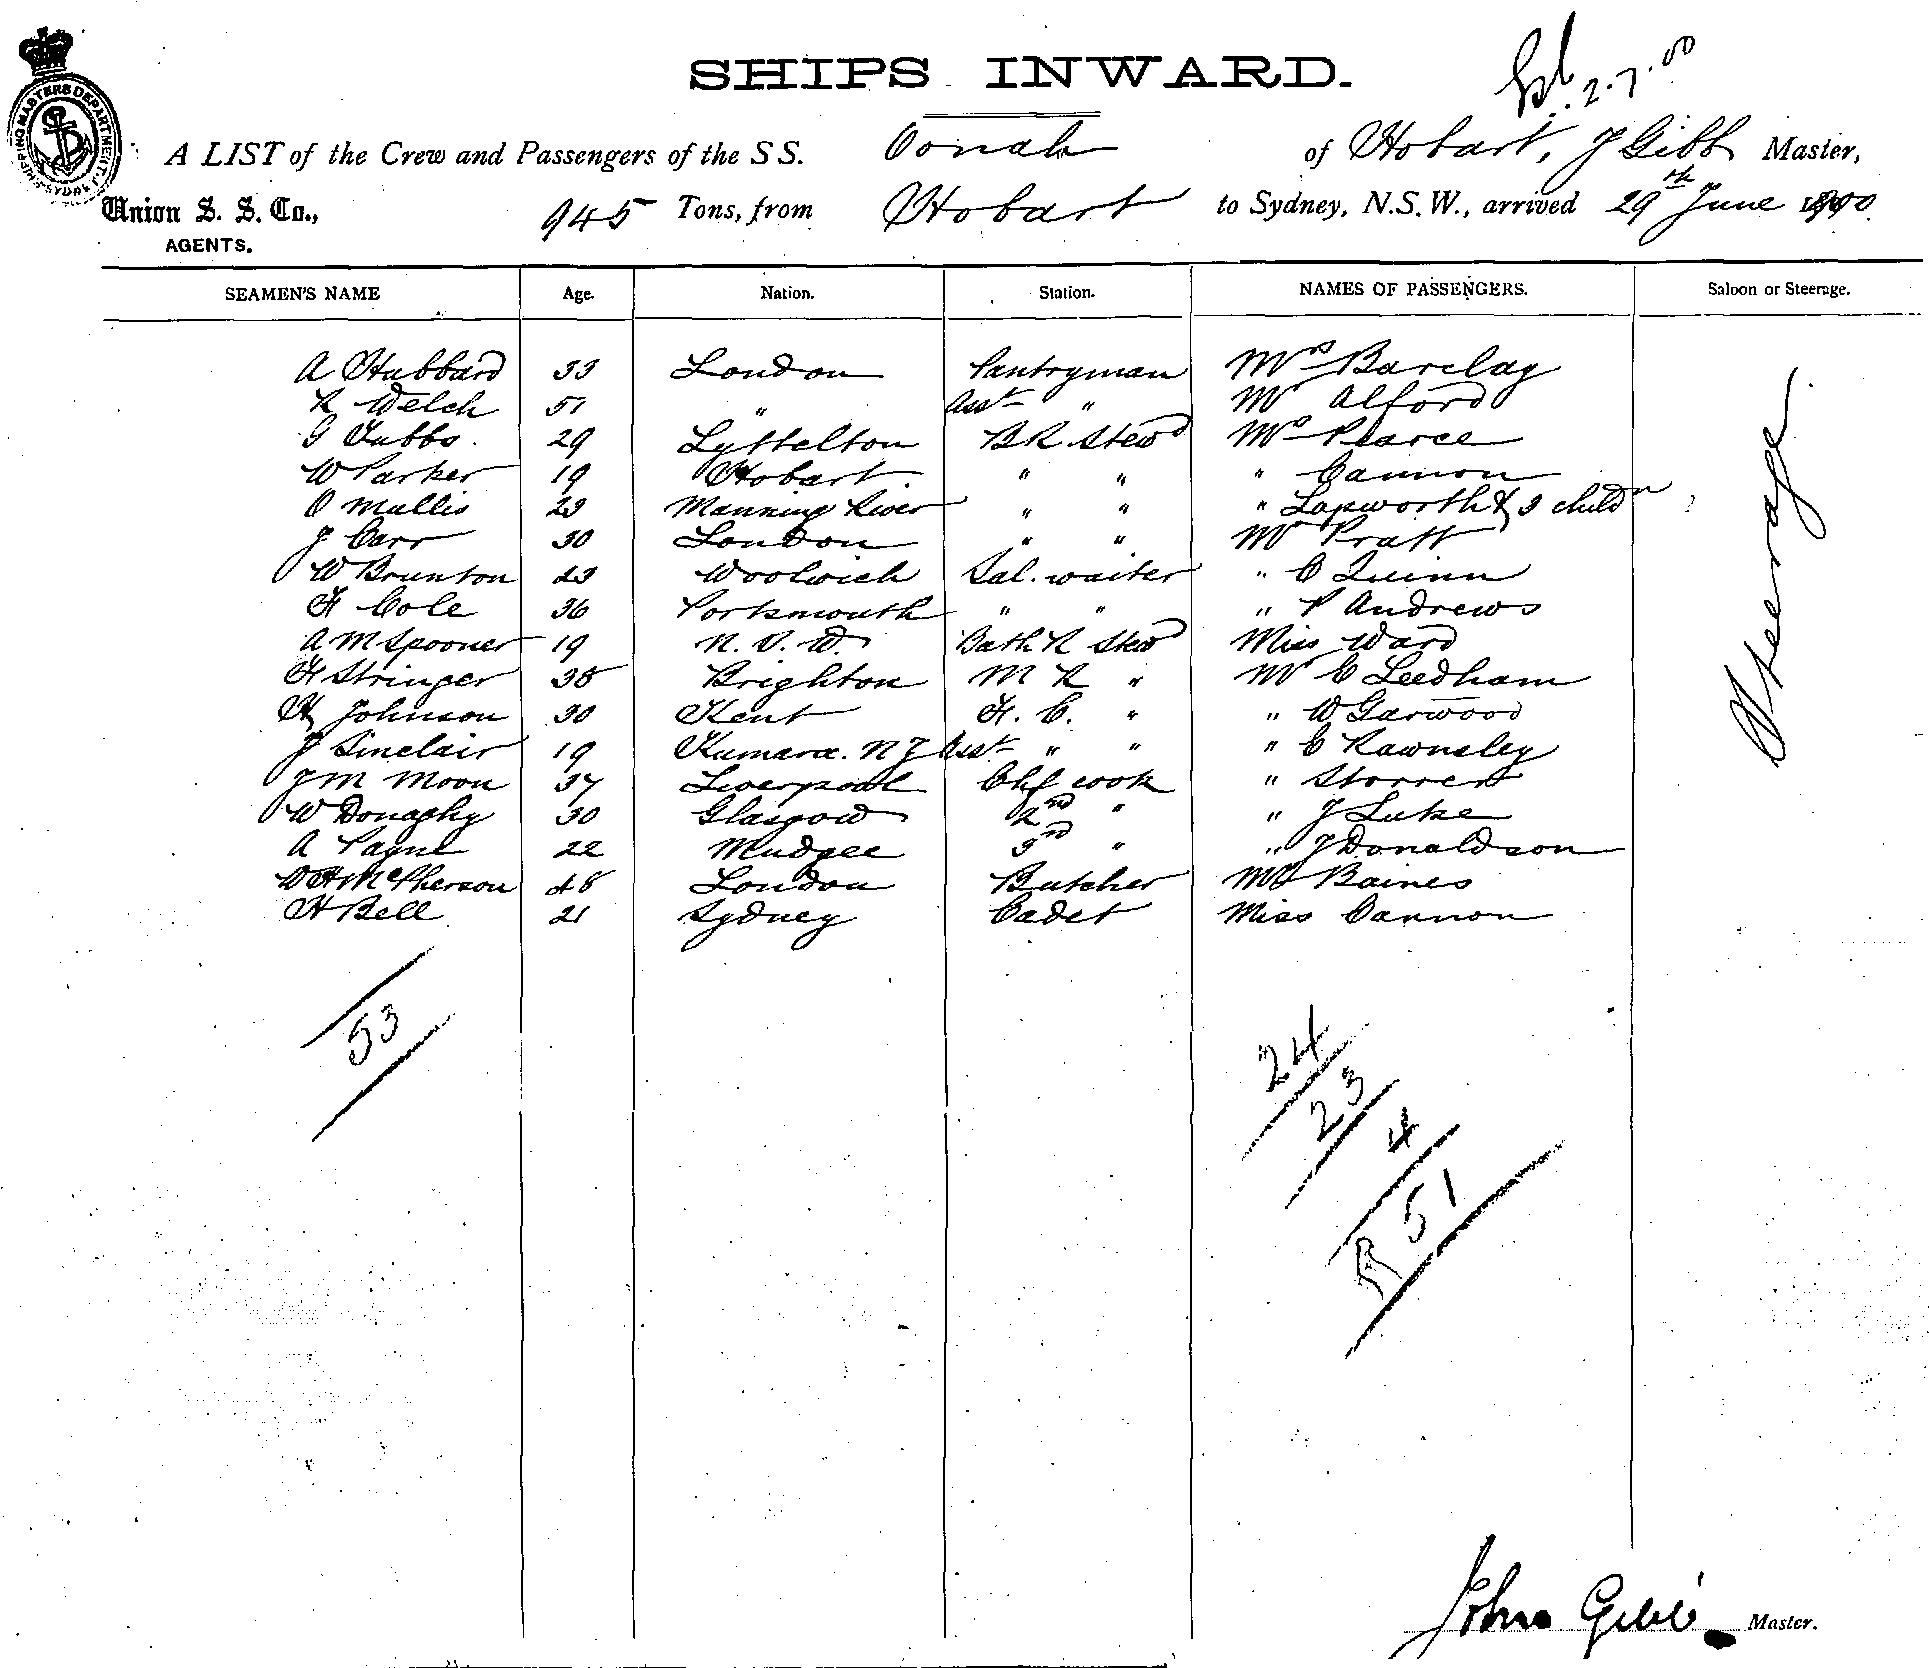 SHIPS INWARD.
2.7.00
SHIPPING MASTERS DEPARTMENT SYDNEY
A LIST of the Crew and Passengers of the SS. Oonah of Hobart, J Gibb Master,
Union S. S. Co., AGENTS. 945 Tons, from Hobart to Sydney, N.S.W., arrived 29th June 1900
SEAMEN'S NAME Age. Nation. Station. NAMES OF PASSENGERS. Saloon or Steerage.
A Hubbard 33 London Pantryman Mrs Barclay
R Welch 51 " Asst " Mr Alford
G Tubbs 29 Lyttelton B R Stewd Mrs Pearce
W Parker 19 Hobart " " " Cannon
O Mallis 23 Manning River " " " Lapworth & 3 childn
J Carr 30 London " " Mr Pratt
W Brunton 43 Woolwich Sal. waiter " C Quinn
H Cole 36 Portsmouth " " " P Andrews
A M Spooner 19 N. S. W. Bath R Stewd Miss Ward
H Stringer 38 Brighton M R " Mr C Leedham
H Johnson 30 Kent F. C. " " W Garwood
J Sinclair 19 Kumara. N Z Asst " " " C Rawnsley
J M Moon 37 Liverpool Chf cook " Storrer
W Donaghy 30 Glasgow 2nd " " J Luke
A Payne 22 Mudgee 3rd " " J Donaldson
W H McPherson 48 London Butcher Mrs Baines
H Bell 21 Sydney Cadet Miss Cannon
Steerage.
53
24
23
4
51
John Gibb Master.